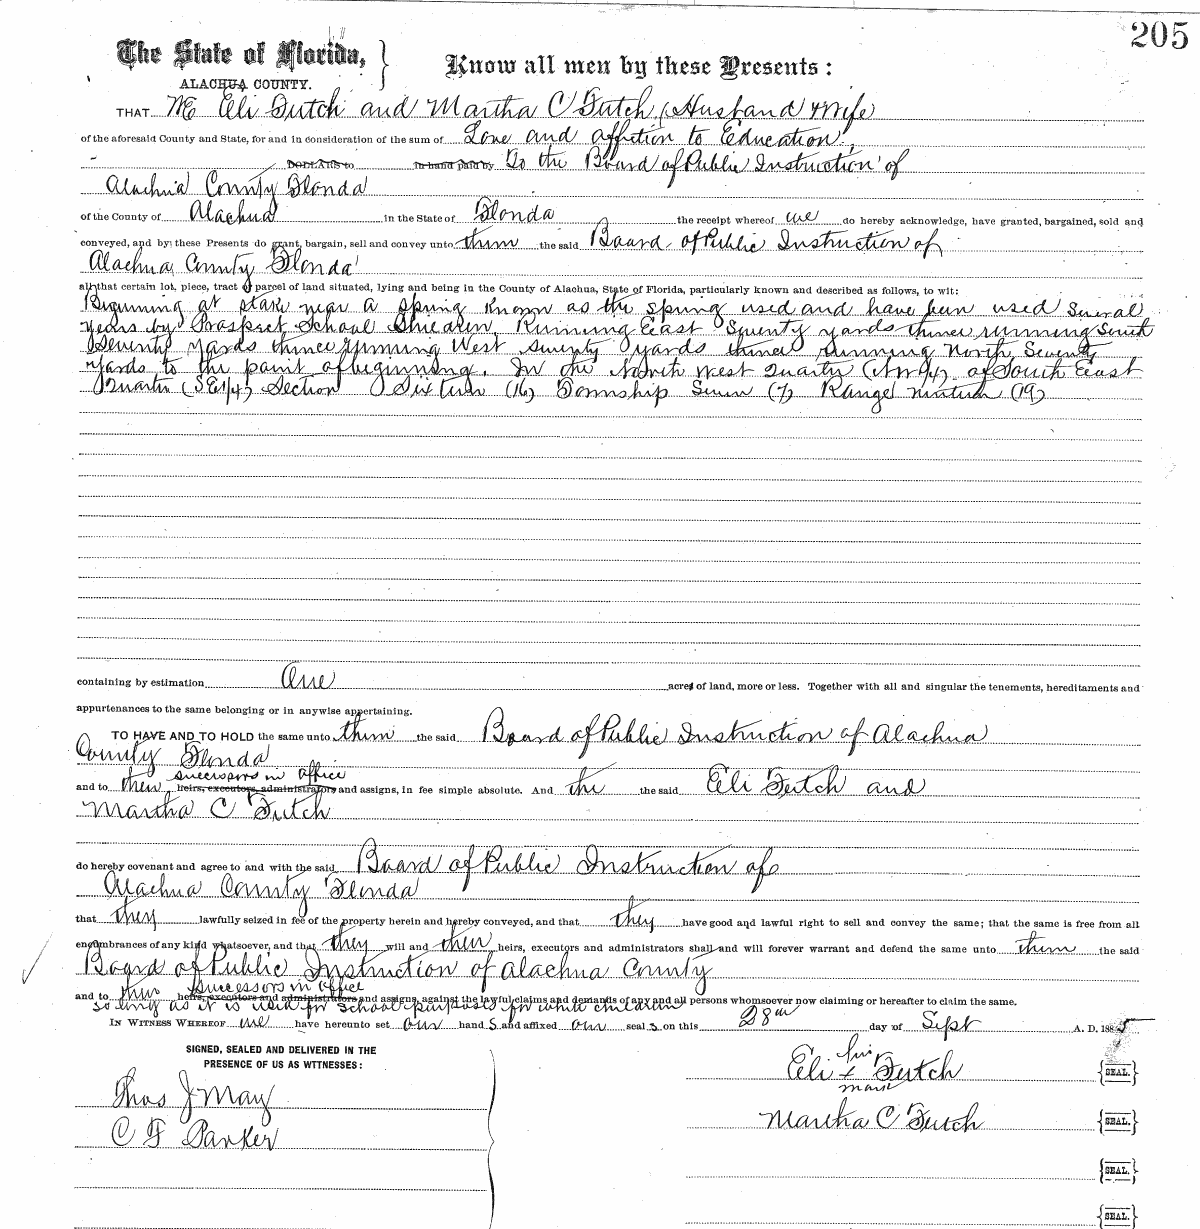 205
The State of Florida,
ALACHUA COUNTY.
Know all men by these Presents:
THAT We Eli Futch and Martha C Futch (Husband & Wife)
of the aforesaid County and State, for and in consideration of the sum of Love and affection to Education,
DOLLARS to in hand paid by To the Board of Public Instruction of
Alachua County Florida
of the County of Alachua in the State of Florida the receipt whereof we do hereby acknowledge, have granted, bargained, sold and
conveyed, and by these Presents do grant, bargain, sell and convey unto them the said Board of Public Instruction of
Alachua County Florida
all that certain lot, piece, tract of parcel of land situated, lying and being in the County of Alachua, State of Florida, particularly known and described as follows, to wit:
Beginning at stake near a spring known as the spring used and have been used Several
years by Prospect School Children, Running East Seventy yards thence running South
Seventy yards thence running West seventy yards thence running North Seventy
yards to the point of beginning. In the North West Quarter (NW1/4) of South East
Quarter (SE1/4) Section Sixteen (16) Township Seven (7) Range nineteen (19)
containing by estimation One acres of land, more or less. Together with all and singular the tenements, hereditaments and
appurtenances to the same belonging or in anywise appertaining.
TO HAVE AND TO HOLD the same unto them the said Board of Public Instruction of Alachua
County Florida
successors in office
and to their heirs, executors, administrators and assigns, in fee simple absolute. And the the said Eli Futch and
Martha C Futch
do hereby covenant and agree to and with the said Board of Public Instruction of
Alachua County Florida
that they lawfully seized in fee of the property herein and hereby conveyed, and that they have good and lawful right to sell and convey the same; that the same is free from all
encumbrances of any kind whatsoever, and that they will and their heirs, executors and administrators shall and will forever warrant and defend the same unto them the said
Board of Public Instruction of Alachua County
successors in office
and to their heirs, executors and administrators and assigns, against the lawful claims and demands of any and all persons whomsoever now claiming or hereafter to claim the same.
so long as it is used for school purposes for white children
IN WITNESS WHEREOF we have hereunto set our hand s and affixed our seal s on this 28th day of Sept A. D. 1885
SIGNED, SEALED AND DELIVERED IN THE
PRESENCE OF US AS WITNESSES:
his
Eli x Futch SEAL.
mark
Thos J May
Martha C Futch SEAL.
C F Parker
SEAL.
SEAL.